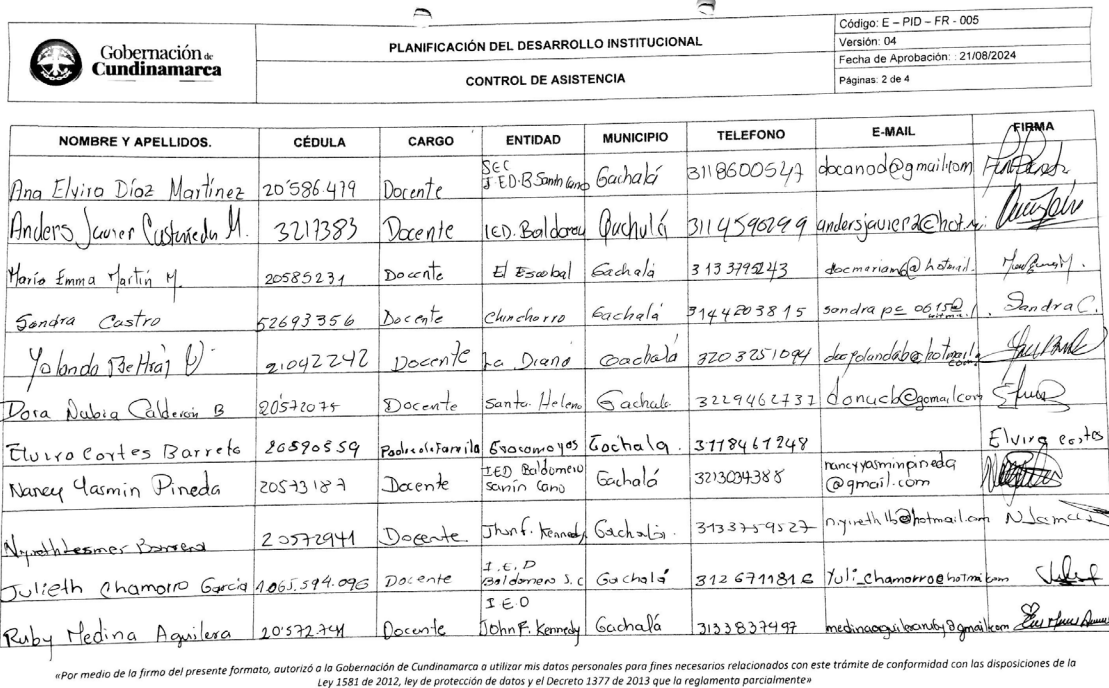 Gobernación de
Cundinamarca
PLANIFICACIÓN DEL DESARROLLO INSTITUCIONAL
CONTROL DE ASISTENCIA
Código: E – PID – FR - 005
Versión: 04
Fecha de Aprobación: : 21/08/2024
Páginas: 2 de 4
NOMBRE Y APELLIDOS. CÉDULA CARGO ENTIDAD MUNICIPIO TELEFONO E-MAIL FIRMA
Ana Elvira Díaz Martínez 20'586.479 Docente SEC I.E.D.B Sanin Cano Gachalá 3118600547 docanod@gmail.com
Anders Javier Castañeda M. 3217383 Docente I.E.D. Baldomey Gachalá 3114590299 andersjavier2@hot
María Emma Martín M. 20585231 Docente El Escobal Gachalá 3133795243 docmariam6@hotmail.
Sandra Castro 52693356 Docente Chincharro Gachalá 3144203815 sandrapc0615@ Sandra C.
Yolanda Beltrán 21042242 Docente La Diana Gachalá 3203251094 docyolandab@hotmail.com
Dora Nubia Calderón B 20572075 Docente Santa Helena Gachala 3229462737 donucb@gmail.com
Elvira Cortes Barreto 20590559 Padre de Familia Guacamayas Gachala. 3118461248 Elvira cortes
Nancy Yasmin Pineda 20573187 Docente IED Baldomero Sanín Cano Gachalá 3213034388 nancyyasminpineda@gmail.com
Nyireth Lesmes Barrera 20572941 Docente Jhon f. Kennedy Gachalá. 3133759527 nyireth16@hotmail.com
Julieth Chamorro Garcia 1065.594.096 Docente I.E.D Baldomero S.C Gachalá 3126711816 Yuli_chamorro@hotmail.com
Ruby Medina Aguilera 20'572.741 Docente I E D John F. Kennedy Gachalá 3133837497 medinaaguileraruby@gmail.com
«Por medio de la firma del presente formato, autorizó a la Gobernación de Cundinamarca a utilizar mis datos personales para fines necesarios relacionados con este trámite de conformidad con las disposiciones de la
Ley 1581 de 2012, ley de protección de datos y el Decreto 1377 de 2013 que la reglamenta parcialmente»